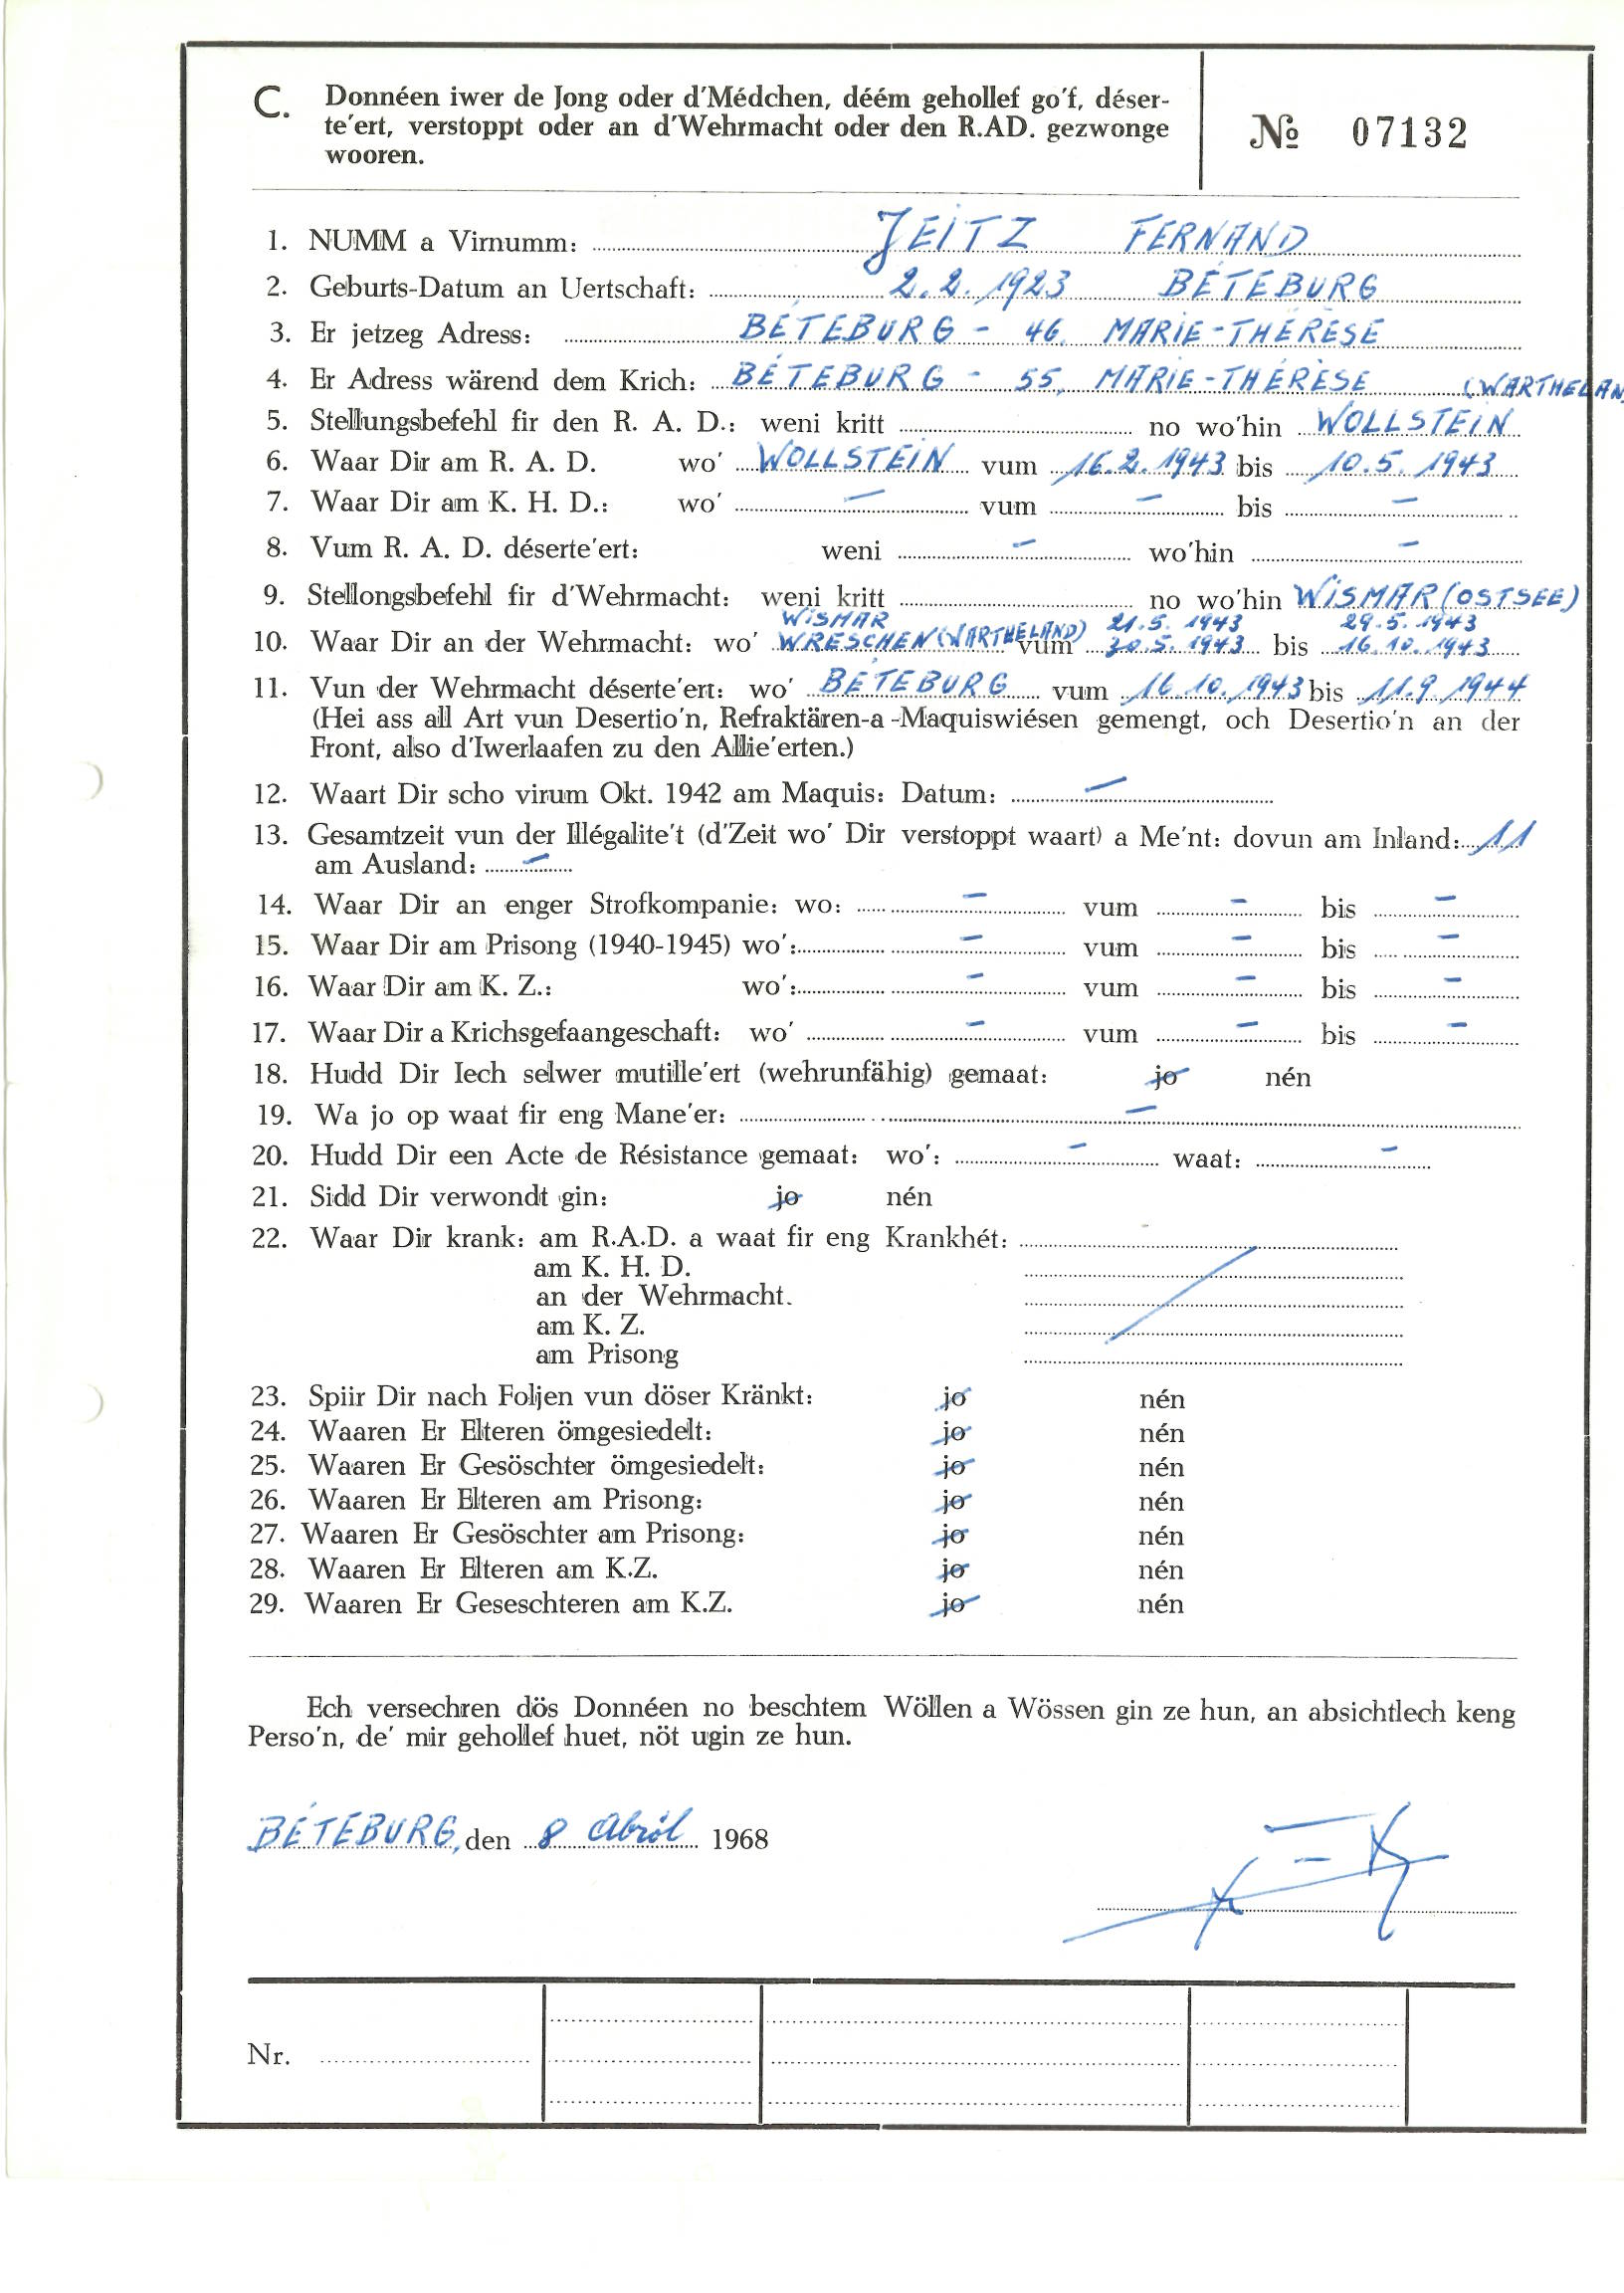 C. Donnéen iwer de Jong oder d'Médchen, déém gehollef go'f, déser-
te'ert, verstoppt oder an d'Wehrmacht oder den R.AD. gezwonge
wooren.
№ 07132
1. NUMM a Virnumm: JEITZ FERNAND
2. Geburts-Datum an Uertschaft: 2.2.1923 BÉTEBURG
3. Er jetzeg Adress: BÉTEBURG - 46, MARIE-THÉRÈSE
4. Er Adress wärend dem Krich: BÉTEBURG - 55, MARIE-THÉRÈSE (WARTHELAN
5. Stellungsbefehl fir den R. A. D.: weni kritt no wo'hin WOLLSTEIN
6. Waar Dir am R. A. D. wo' WOLLSTEIN vum 16.2.1943 bis 10.5.1943
7. Waar Dir am K. H. D.: wo' — vum — bis —
8. Vum R. A. D. déserte'ert: weni — wo'hin —
9. Stellongsbefehl fir d'Wehrmacht: weni kritt no wo'hin WISMAR (OSTSEE)
WISMAR 21.5.1943 29.5.1943
10. Waar Dir an der Wehrmacht: wo' WRESCHEN (WARTHELAND) vum 30.5.1943 bis 16.10.1943
11. Vun der Wehrmacht déserte'ert: wo' BÉTEBURG vum 16.10.1943 bis 11.9.1944
(Hei ass all Art vun Desertio'n, Refraktären-a -Maquiswiésen gemengt, och Desertio'n an der
Front, also d'Iwerlaafen zu den Allie'erten.)
12. Waart Dir scho virum Okt. 1942 am Maquis: Datum: —
13. Gesamtzeit vun der Illégalite't (d'Zeit wo' Dir verstoppt waart) a Me'nt: dovun am Inland: 11
am Ausland: —
14. Waar Dir an enger Strofkompanie: wo: — vum — bis —
15. Waar Dir am Prisong (1940-1945) wo': — vum — bis —
16. Waar Dir am K. Z.: wo': — vum — bis —
17. Waar Dir a Krichsgefaangeschaft: wo' — vum — bis —
18. Hudd Dir Iech selwer mutille'ert (wehrunfähig) gemaat: jo nén
19. Wa jo op waat fir eng Mane'er: —
20. Hudd Dir een Acte de Résistance gemaat: wo': — waat: —
21. Sidd Dir verwondt gin: jo nén
22. Waar Dir krank: am R.A.D. a waat fir eng Krankhét:
am K. H. D.
an der Wehrmacht.
am K. Z.
am Prisong
23. Spiir Dir nach Foljen vun döser Kränkt: jo nén
24. Waaren Er Elteren ömgesiedelt: jo nén
25. Waaren Er Gesöschter ömgesiedelt: jo nén
26. Waaren Er Elteren am Prisong: jo nén
27. Waaren Er Gesöschter am Prisong: jo nén
28. Waaren Er Elteren am K.Z. jo nén
29. Waaren Er Geseschteren am K.Z. jo nén
Ech versechren dös Donnéen no beschtem Wöllen a Wössen gin ze hun, an absichtlech keng
Perso'n, de' mir gehollef huet, nöt ugin ze hun.
BÉTEBURG, den 8 Abröl 1968
Nr.